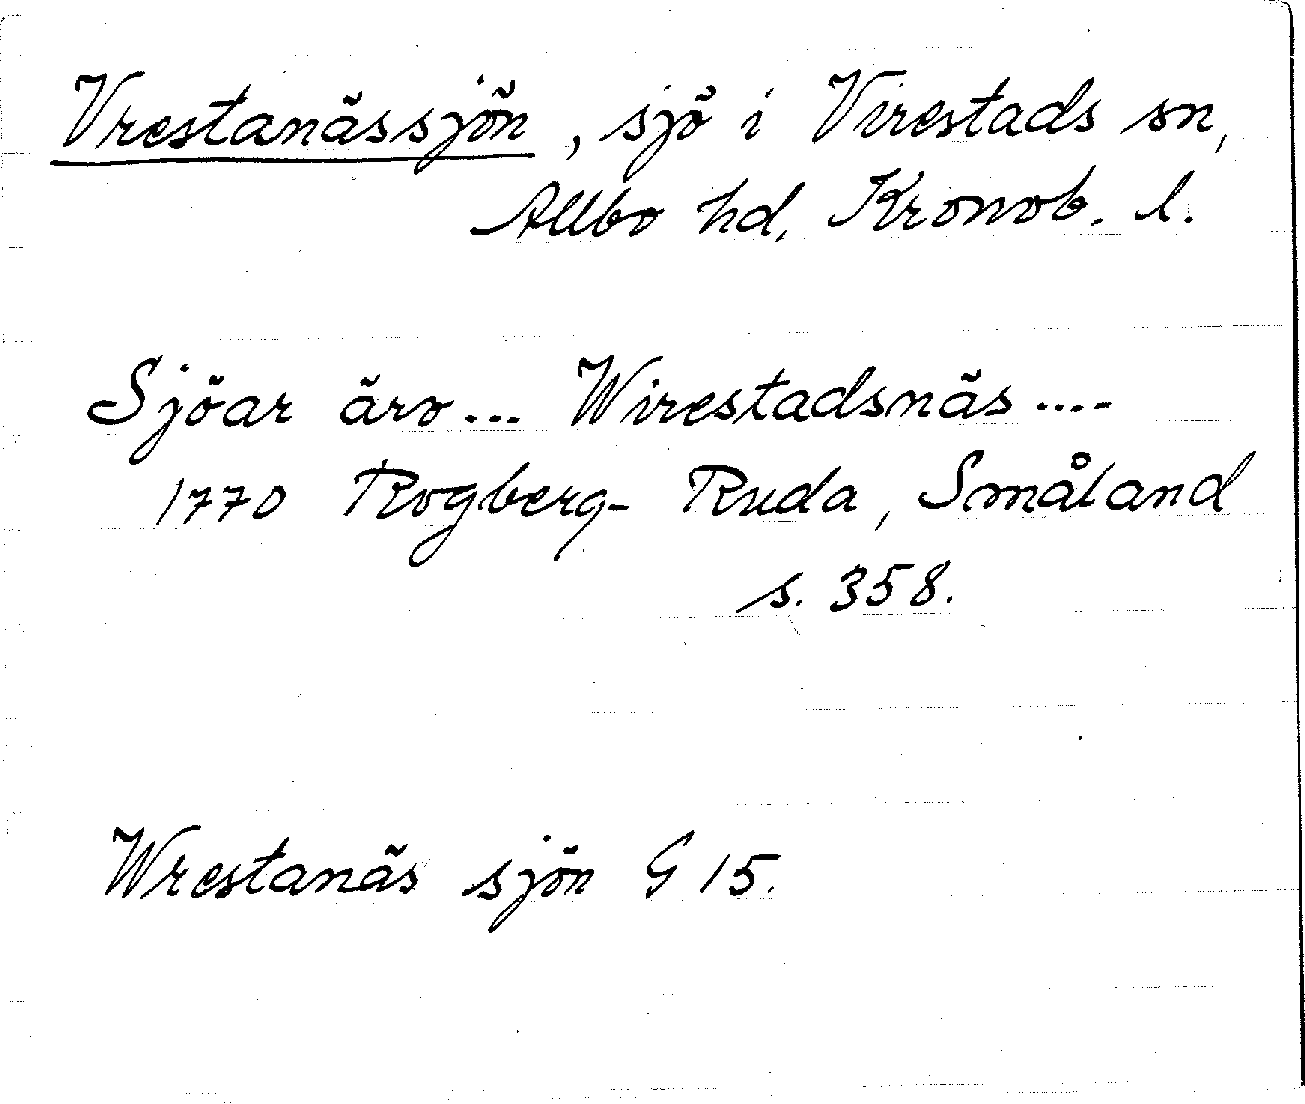 Vrestanässjön, sjö i Virestads sn,
Allbo hd, Kronob. l.
Sjöar äro... Wirestadsnäs ....
1770 Rogberg-Ruda, Småland
s. 358.
Wrestanäs sjön G 15.